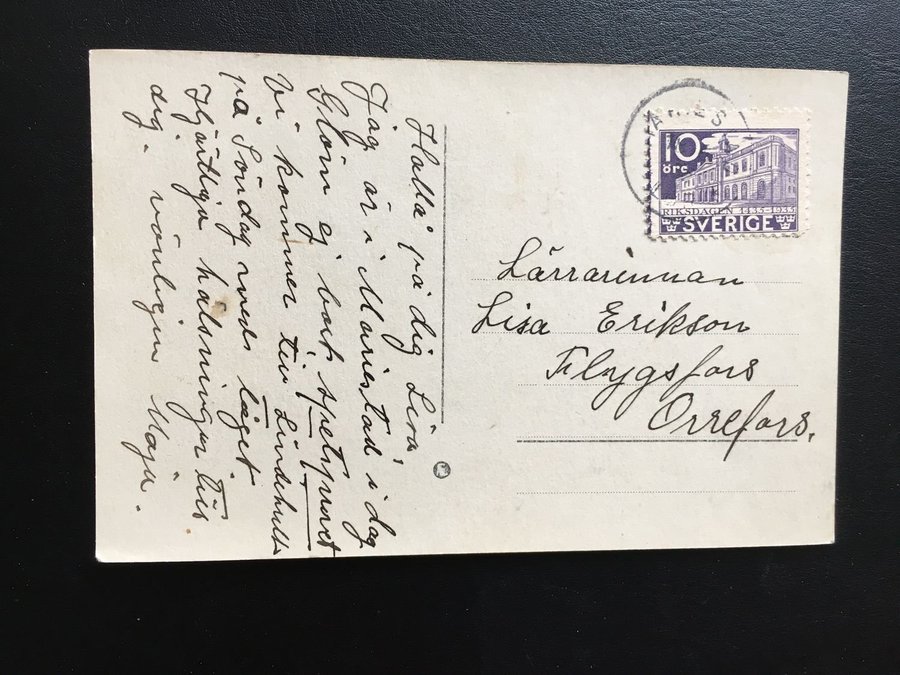 Hallå på dig Lisa
Jag är i Mariestad i dag
Glöm ej bort
Vi kommer till Lindehult
på Söndag med tåget
Hjärtliga hälsningar till
dig. vänligen Maja.
10
öre
RIKSDAGEN 1435-1935
SVERIGE
Lärrarinnan
Lisa Erikson
Flygsfors
Orrefors.